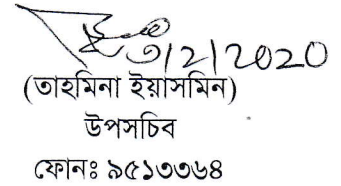 ৩/2/2020
(তাহমিনা ইয়াসমিন)
উপসচিব
ফোনঃ ৯৫১৩৩৬৪